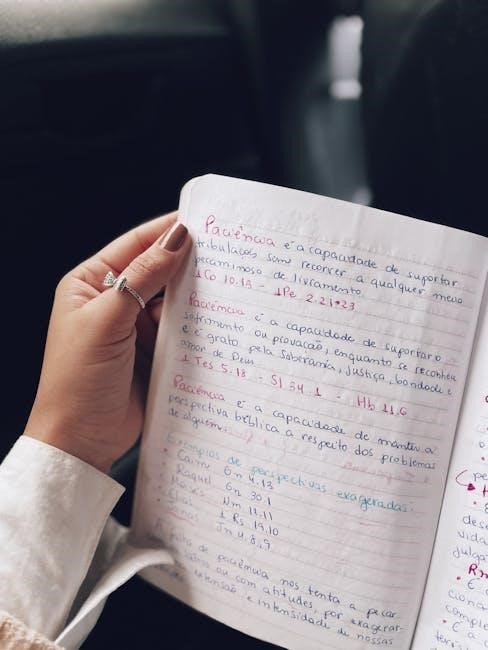 Paciência é a capacidade de suportar
tribulações sem recorrer a qualquer meio
pecaminoso de livramento
1Co 10.13 - 1Pe 2.21-23
Paciência é a capacidade de suportar o
sofrimento ou provação, enquanto se reconhece
e é grato pela soberania, justiça, bondade e
amor de Deus
1 Tes 5.18 - Sl 34.1 - Hb 11.6
Paciência é a capacidade de manter a
perspectiva bíblica a respeito dos problemas
de alguém.
Exemplos de perspectivas exageradas:
• Caim Gn 4.13
• Raquel Gn 30.1
• Moisés Nm 11.11
• Elias 1 Rs 19.10
• Jonas Jn 4.8,9
A falta de paciência nos tenta a pecar
ou com atitudes, por exagerar
extensão e intensidade de nossas
• E
vida
julga
• E